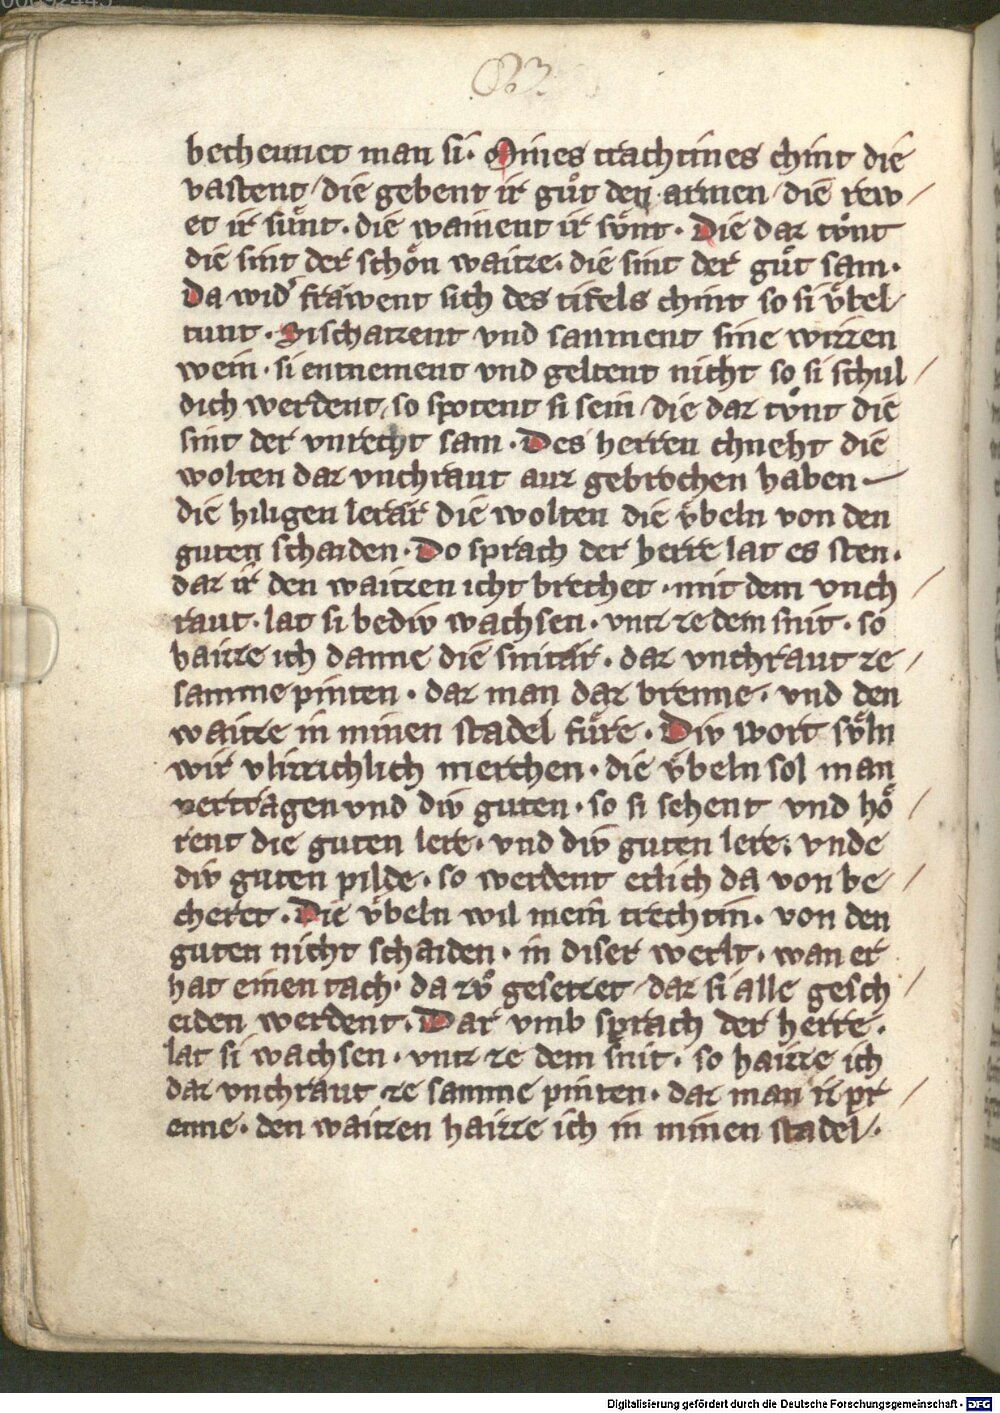 83.
bechennet man si. Mines trachtines chint die
vastent / die gebent ir guͦt den armen / die rew /
et ir suͤnt. die wainent ir suͤnt. Die daz toͮnt
die sint der schoͤn waitze. die sint der guͦt sam.
Da wid' frawent sich des tifels chint so si vͤbel
tunt. Si schatzent vnd saument sine wizzen
wein. si entnement vnd geltent nicht so si schul /
dich werdent, so spotent si sein / die daz toͮnt die
sint der vnrecht sam. Des herren chneht die
wolten daz vnchraut auz gebrochen haben —
die hiligen lerær die wolten die vͤbeln von den
guten schaiden. Do sprach der herre lat es sten.
daz ir den waitzen icht brechet. mit dem vnch /
raut. lat si bediv wachsen. vntz ze dem snit. so
haizze ich danne die snitær. daz vnchraut ze /
samme pinten. daz man daz brenne. vnd den
waitze in minen stadel fuͤre. Div wort suͤln
wir vlizzichlich merchen. die vͤbeln sol man
vertragen vnd div guten. so si sehent vnd hoͤ /
rent die guten lere. vnd div guten lere. vnde
div guten pilde. so werdent etlich da von be /
cheret. Die vͤbeln wil mein trechtin. von den
guten nicht schaiden. in diser werlt. wan er
hat einen tach. da zvͦ gesetzet / daz si alle gesch /
eiden werdent. Dar vmb sprach der herre.
lat si wachsen. vntz ze dem snit. so haizze ich
daz vnchraut ze samme pinten. daz man iz pr /
enne. den waitzen haizze ich in minen stadel.
Digitalisierung gefördert durch die Deutsche Forschungsgemeinschaft - DFG